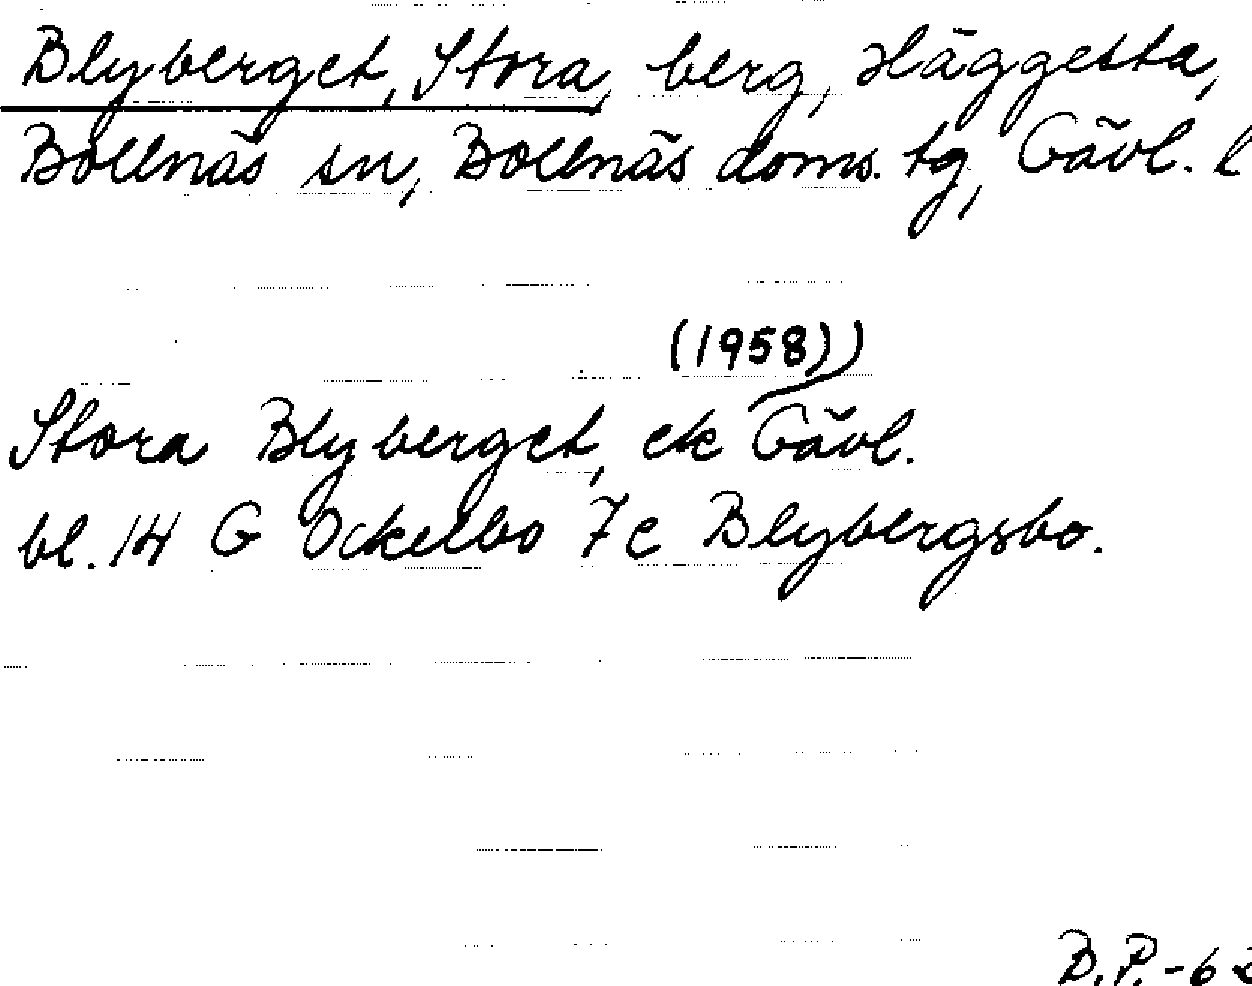 Blyberget, Stora, berg, Häggesta,
Bollnäs sn, Bollnäs doms. tg, Gävl. l
(1958))
Stora Blyberget, ek Gävl.
bl. 14 G Ockelbo 7c Blybergsbo.
B.P.-62